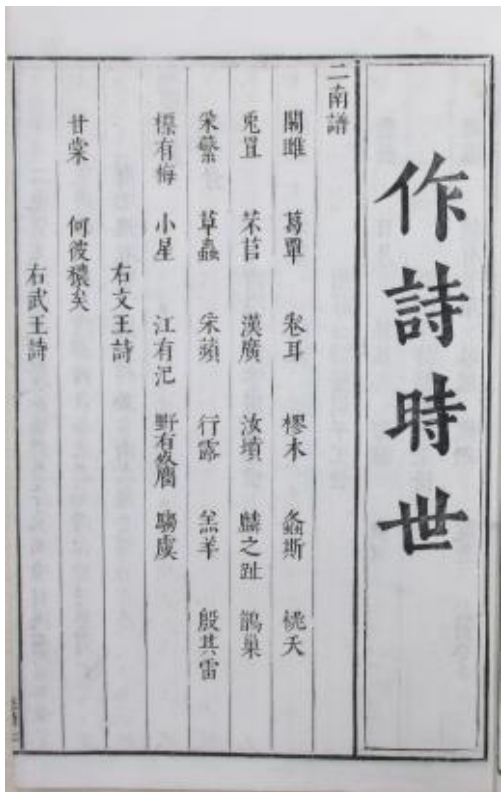 作詩時世
二南譜
關雎 葛覃 卷耳 樛木 螽斯 桃夭
兎罝 芣苢 漢廣 汝墳 麟之趾 鵲巢
采蘩 草蟲 采蘋 行露 羔羊 殷其雷
摽有梅 小星 江有汜 野有死麕 騶虞
右文王詩
甘棠 何彼襛矣
右武王詩